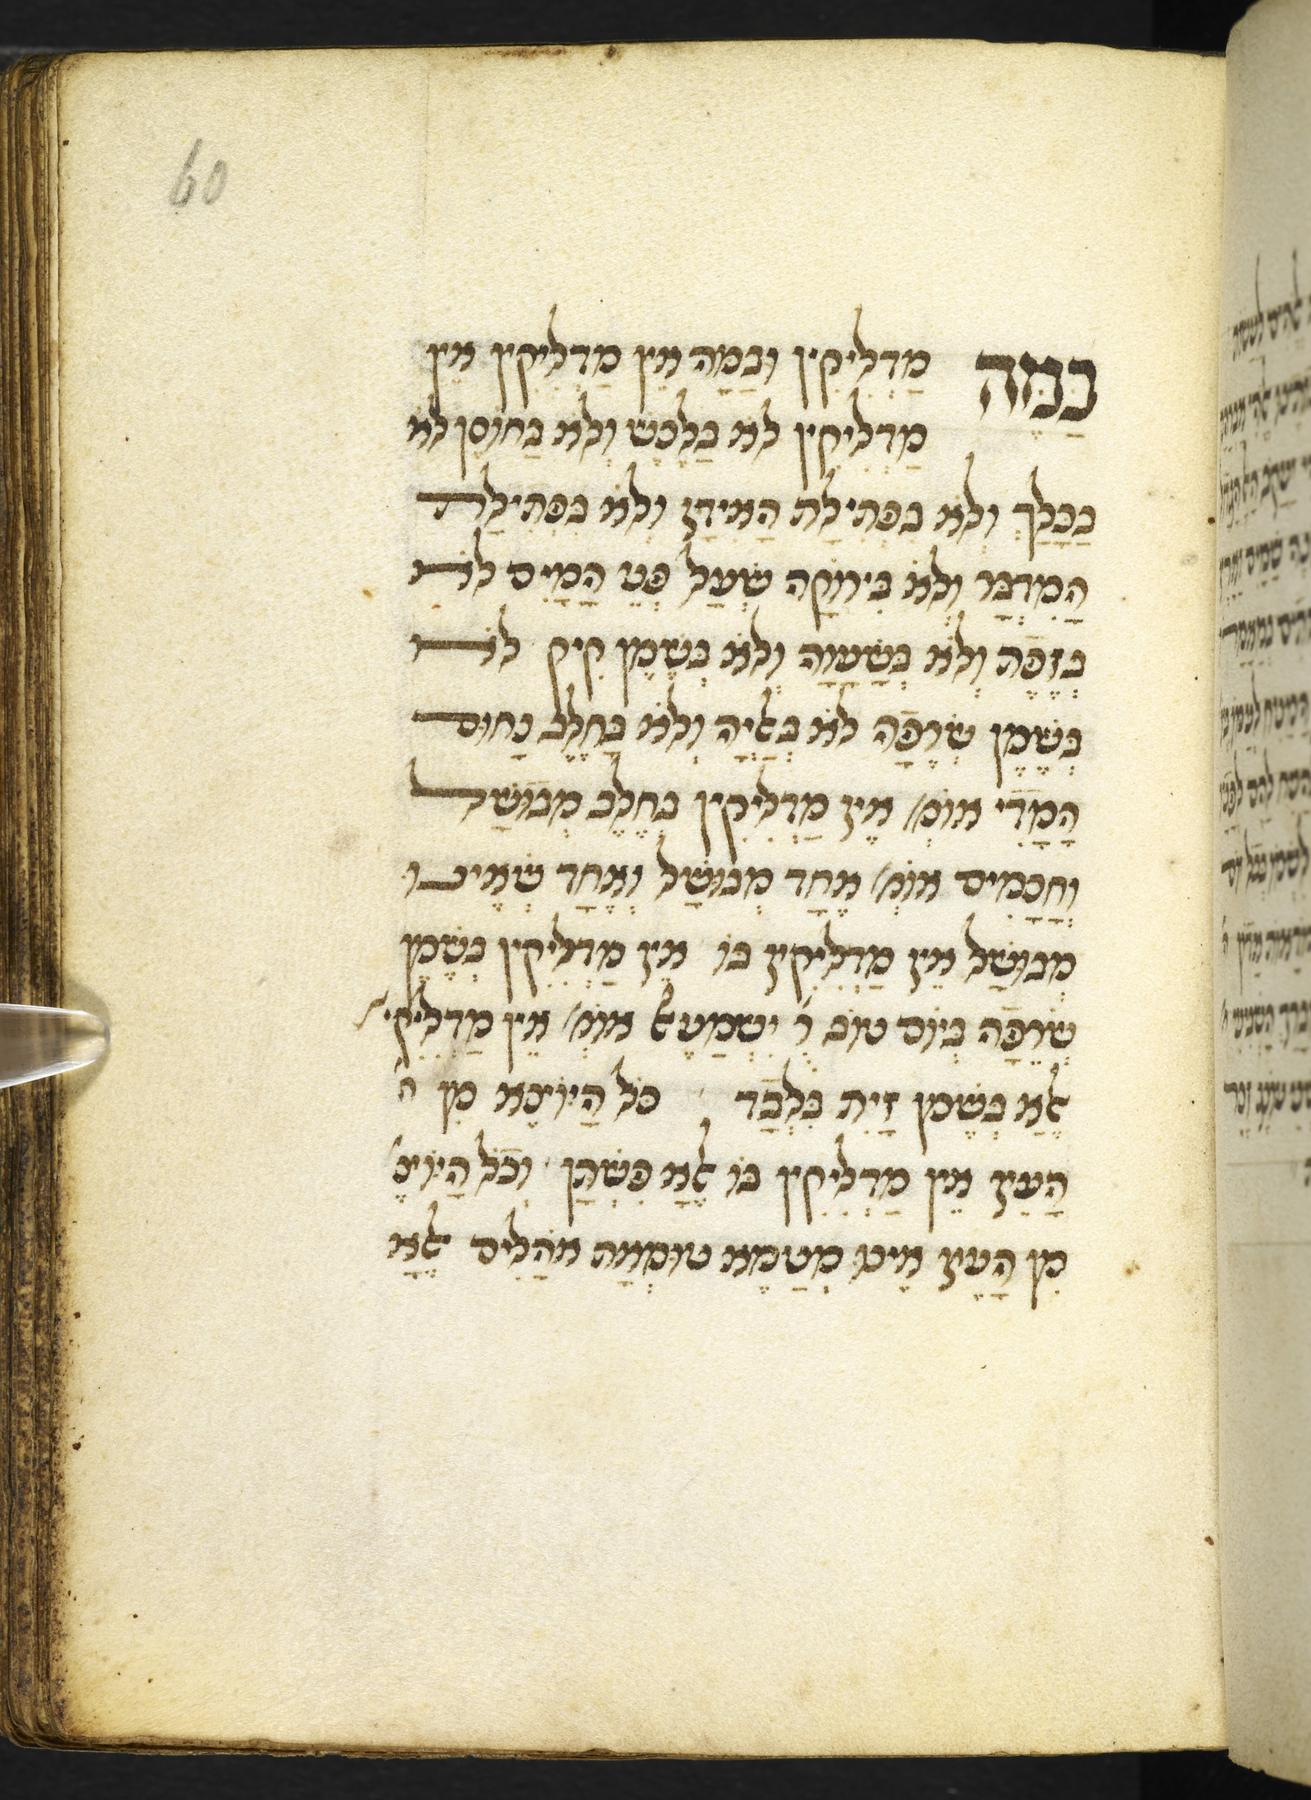 60
בַּמֶּה מַדְלִיקִין וּבַמָּה אֵין מַדְלִיקִין אֵין
מַדְלִיקִין לֹא בַלֶּכֶשׁ וְלֹא בַחוֹסֶן לֹא
בַּכָּלָךְ וְלֹא בִּפְתִילַת הָאִידָן וְלֹא בִּפְתִילַת
הַמִּדְבָּר וְלֹא בִּירוֹקָה שֶׁעַל פְּנֵי הַמַּיִם לֹא
בְּזֶפֶת וְלֹא בְּשַׁעֲוָה וְלֹא בְּשֶׁמֶן קִיק לֹא
בְּשֶׁמֶן שְׂרֵפָה לֹא בְּאַלְיָה וְלֹא בְּחֵלֶב נָחוּם
הַמָּדִי אוֹמֵ' אֵין מַדְלִיקִין בְּחֵלֶב מְבוּשָּׁל
וַחֲכָמִים אוֹמְ' אֶחָד מְבוּשָּׁל וְאֶחָד שֶׁאֵינוֹ
מְבוּשָּׁל אֵין מַדְלִיקִין בּוֹ אֵין מַדְלִיקִין בְּשֶׁמֶן
שְׂרֵפָה בְּיוֹם טוֹב ר' יִשְׁמָעֵאל אוֹמֵ' אֵין מַדְלִיקִי'
אֶלָּא בְּשֶׁמֶן זַיִת בִּלְבַד כֹּל הַיּוֹצֵא מִן ה'
הָעֵץ אֵין מַדְלִיקִין בּוֹ אֶלָּא פִּשְׁתָּן וְכֹל הַיּוֹצֵ'
מִן הָעֵץ אֵינוֹ מְטַמֵּא טוּמְאַת אֹהָלִים אֶלָּא